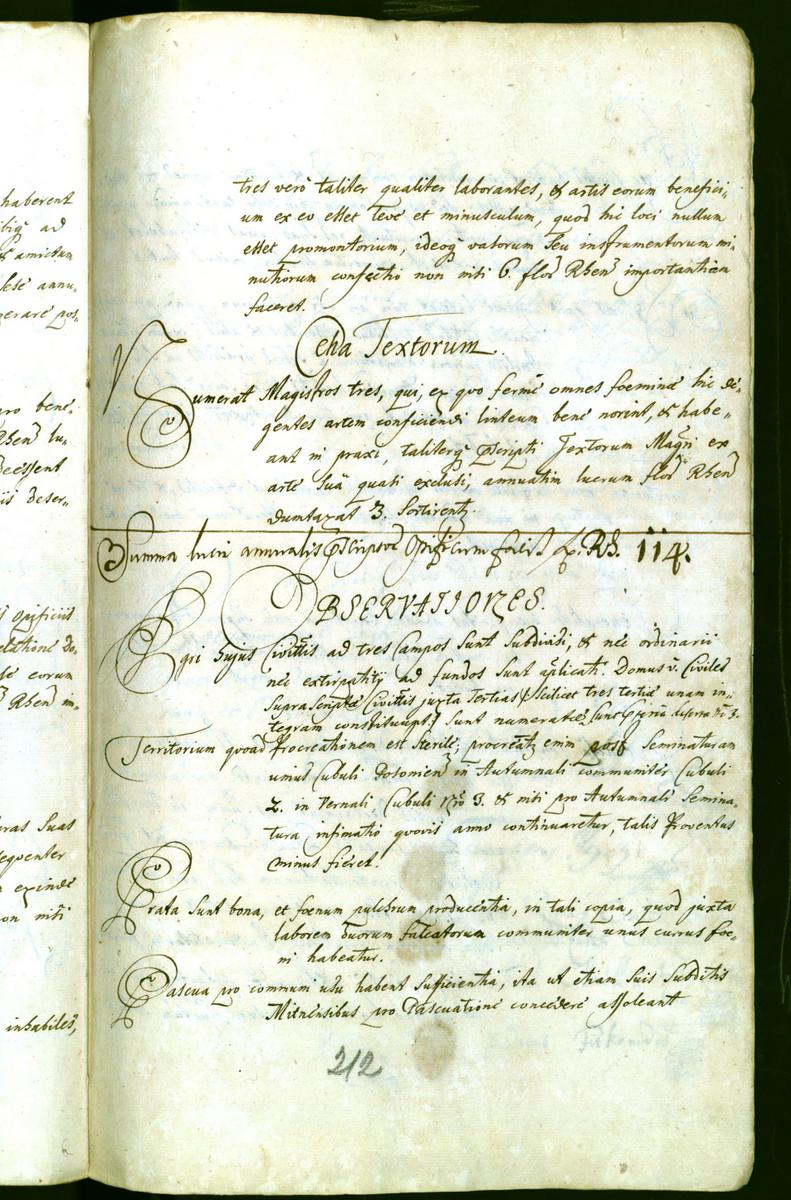 haberent
ad
amictum
annu-
pos-
bene-
Rhen lu-
deessent
deser-
Opificiis
relatione Do-
eorum
Rhen im-
suas
sequenter
exinde
non nisi
inhabiles,
tres verò taliter qualiter laborantes, & artis eorum benefici-
um ex eo esset leve et minusculum, quod hic loci nullum
esset promontorium, ideoq vasorum seu instrumentorum mi-
nutiorum confectio non nisi 6. flor Rhen importantiam
faceret.
Ceha Textorum.
Numerat Magistros tres, qui, ex quo fermè omnes foeminæ hic de-
gentes artem conficiendi linteum benè norint, & habe-
ant in praxi, taliterq pscripti Textorum Magri ex
arte suâ quasi exclusi, annuatim lucrum flor Rhen
dumtaxat 3. sortirentr.
Summa lucri annualis pscriptor Opificum facit f. Rh. 114.
OBSERVATIONES.
Agri hujus Civittis ad tres Campos sunt subdivisi, & nec ordinarii
nec extirpatitij ad fundos sunt aplicati. Domus v. Civiles
suprascriptæ Civittis juxta Tertias scilicet tres tertiæ unam in-
tegram constituunt, sunt numeratæ,
Territorium quoad Procreationem est sterile; procreatr enim post seminaturam
unius Cubuli Posonien in Autumnali communiter Cubuli
2. in Vernali, Cubuli 3. & nisi pro Autumnali semina-
tura, infimatio quovis anno continuaretur, talis Proventus
minus fieret.
Prata sunt bona, et foenum pulchrum producentia, in tali copia, quod juxta
laborem duorum falcatorum communiter unus currus foe-
ni habeatur.
Pascua pro communi usu habent sufficientia, ita ut etiam suis subditis
Mitnensibus pro Pascuatione concedere assoleant
212